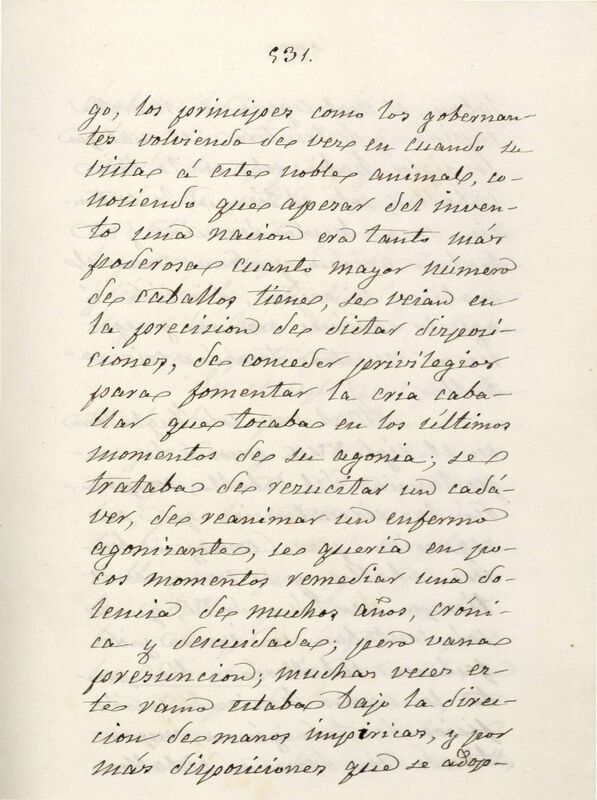 531.
go, los principes como los gobernan-
tes volviendo de vez en cuando su
vista á este noble animal, co-
nociendo que apezar del inven-
to una nacion era tanto más
poderosa cuanto mayor número
de caballos tiene, se veian en
la precision de dictar disposi-
ciones, de conceder privilegios
para fomentar la cria caba-
llar que tocaba en los últimos
momentos de su agonia; se
trataba de rezucitar un cadá-
ver, de reanimar un enfermo
agonizante, se queria en po-
cos momentos remediar una do-
lencia de muchos años, cróni-
ca y descuidada; pero vana
presuncion; muchas veces es-
te ramo estaba bajo la direc-
cion de manos impiricas, y por
más disposiciones que se adop-